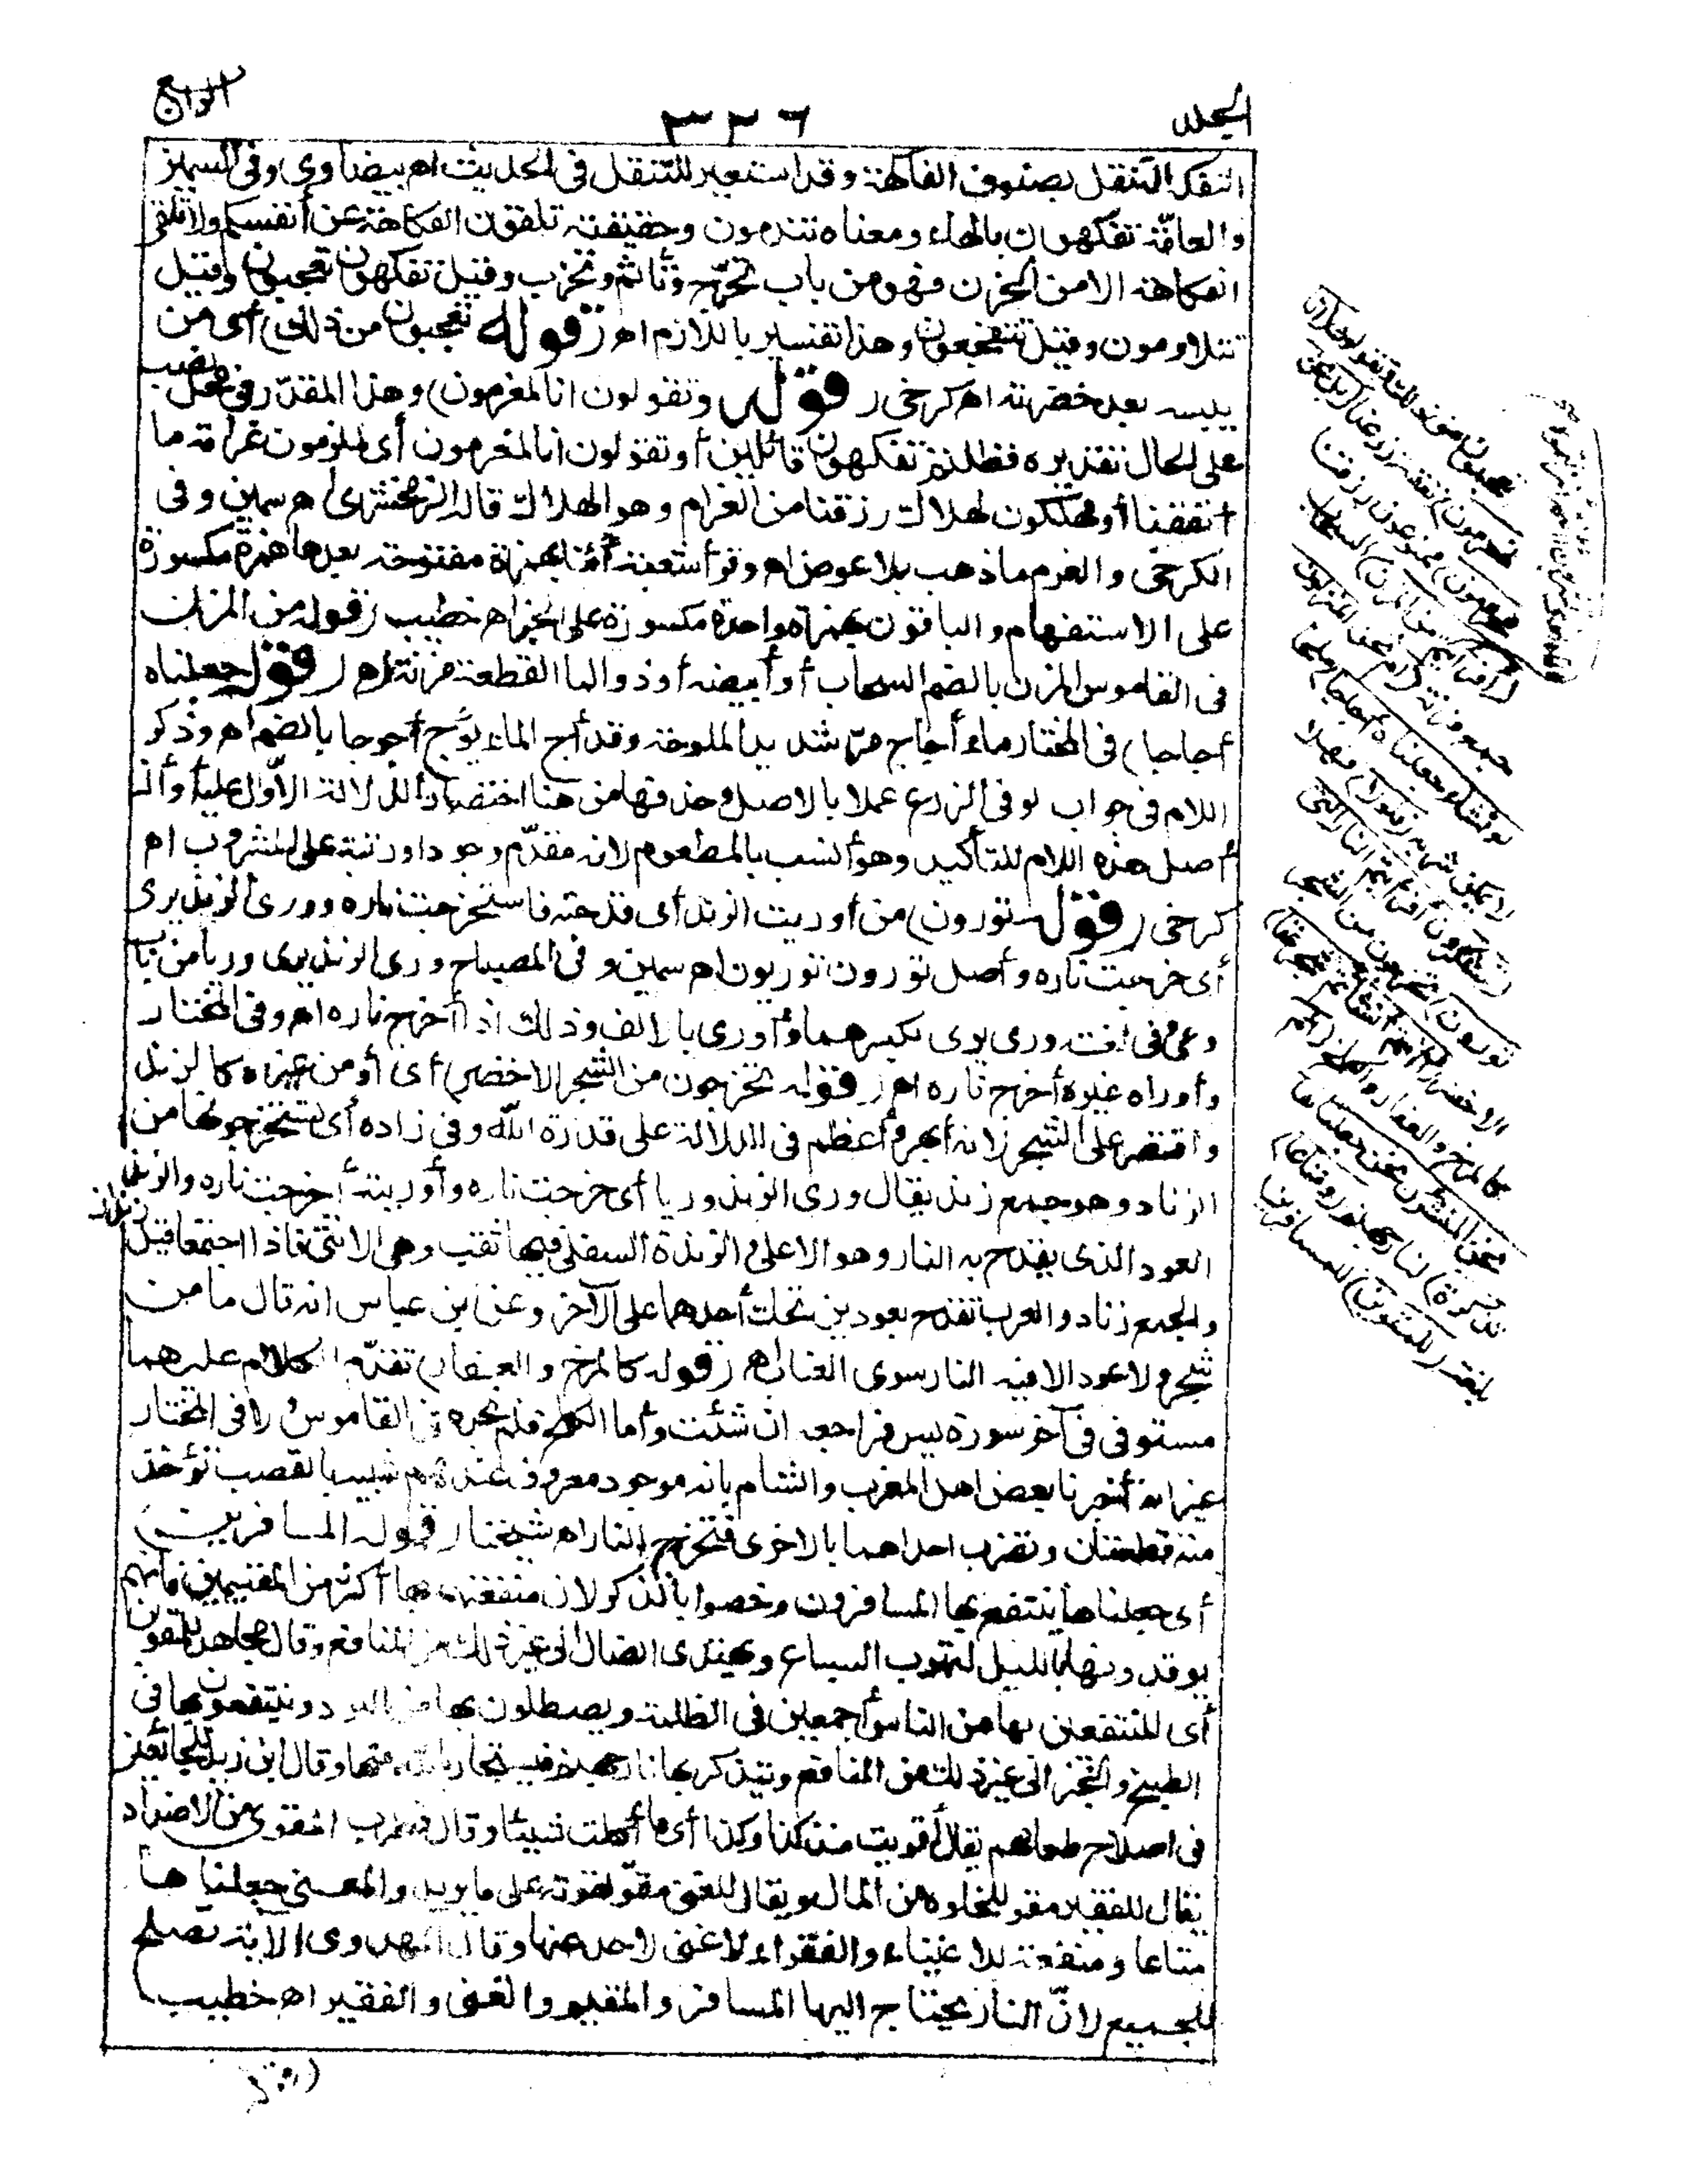 المجلد
٣٣٦
الرابع
التفكه التنقل بصنوف الفاكهة وقد استعير للتنقل فى الحديث اه بيضاوى وفى السمين
والعامّة تفكهون بالهاء ومعناه تندمون وحقيقته تلقون الفكاهة عن أنفسكم ولا تلقى
الفكاهة الا من الحزن فهو من باب تحرّج وتأثم وتحوّب وقيل تفكهون تعجبون وقيل
تتلاومون وقيل تتفجعون وهذا تفسير باللازم اه (قوله تعجبون من ذلك) أى من
يبسه بعد خضرته اه كرخى (قوله وتقولون انا لمغرمون) وهذا المقدّر فى محل نصب
على الحال تقديره فظلتم تفكهون قائلين أو تقولون انا لمغرمون أى لملزمون غرامة ما
أنفقنا أو مهلكون لهلاك رزقنا من الغرام وهو الهلاك قاله الزمخشرى اه سمين وفى
الكرخى والغرم ما ذهب بلا عوض اه وقرأ شعبة أئنا بهمزة مفتوحة بعدها همزة مكسورة
على الاستفهام والباقون بهمزة واحدة مكسورة على الخبر اه خطيب (قوله من المزن)
فى القاموس المزن بالضم السحاب أو أبيضه أو ذو الماء القطعة مزنة اه (قوله جعلناه
أجاجا) فى المختار ماء أجاج مرّ شديد الملوحة وقد أج الماء يؤج أجوجا بالضم اه وذكر
اللام فى جواب لو فى الزرع عملا بالاصل وحذفها من هنا اختصارا لدلالة الاوّل عليه وأن
أصل هذه اللام للتأكيد وهو أنسب بالمطعوم لانه مقدّم وجودا ورتبة على المشروب اه
كرخى (قوله تورون) من أوريت الزند أى قدحته فاستخرجت ناره وورى الزند يرى
أى خرجت ناره وأصل تورون توريون اه سمين وفى المصباح ورى الزند يرى وريا من باب
وعى وفى لغة ورى يرى بكسرهما وأورى بالالف وذلك اذا أخرج ناره اه وفى المختار
وأوراه غيره أخرج ناره اه (قوله تخرجون من الشجر الاخضر) أى أو من غيره كالزند
واقتصر على الشجر لانه أبهر وأعظم فى الدلالة على قدرة الله وفى زاده أى تستخرجونها من
الزناد وهو جمع زند يقال ورى الزند وريا أى خرجت ناره وأوريته أخرجت ناره والزند
العود الذى يقدح به النار وهو الاعلى والزندة السفلى فيها ثقب وهى الانثى فاذا اجتمعا قيل
زندان
والجمع زناد والعرب تقدح بعودين تحك أحدهما على الآخر وعن ابن عباس انه قال ما من
شجر ولا عود الا فيه النار سوى العناب اه (قوله كالمرخ والعفار) تقدّم الكلام عليهما
مستوفى فى آخر سورة يس فراجعه ان شئت وأما الكلخ فلم نجده فى القاموس ولا فى المختار
غير انه أخبرنا بعض اهل المغرب والشام بانه موجود معروف عندهم شبيه بالقصب تؤخذ
منه قطعتان وتضرب احداهما بالاخرى فتخرج النار اه شيخنا (قوله المسافرين)
أى جعلناها ينتفع بها المسافرون وخصوا بالذكر لان منفعتهم بها أكثر من المقيمين فانهم
يوقدونها بالليل لتهرب السباع ويهتدى الضال الى غير ذلك من المنافع وقال مجاهد للمقوين
أى للمنتفعين بها من الناس أجمعين فى الظلمة ويصطلون بها من البرد وينتفعون بها فى
الطبخ والخبز الى غير ذلك من المنافع ويتذكر بها نار جهنم فيستجار بالله منها وقال ابن زيد للجائعين
فى اصلاح طعامهم يقال أقويت منذ كذا وكذا أى ما أكلت شيئا وقال قطرب المقوى من الاضداد
يقال للفقير مقو لخلوه من المال ويقال للغنى مقو لقوته على ما يريد والمعنى جعلناها
متاعا ومنفعة للاغنياء والفقراء لا غنى لاحد عنها وقال المهدوى الآية تصلح
للجميع لانّ النار يحتاج اليها المسافر والمقيم والغنى والفقير اه خطيب
تعجبون من ذلك وتقولون (انا
لمغرمون) نفقة زرعنا (بل نحن
محرومون) ممنوعون رزقنا
(أنتم أنزلتموه من المزن) السحاب
جمع مزنة (أم نحن المنزلون
لو نشاء جعلناه أجاجا) ملحا
لا يمكن شربه (فلولا) فهلا
(تشكرون أفرأيتم النار التى
تورون) تخرجون من الشجر
الاخضر (أأنتم أنشأتم شجرتها)
كالمرخ والعفار والكلخ (أم
نحن المنشؤن نحن جعلناها
تذكرة) لنار جهنم (ومتاعا)
بلغة (للمقوين) للمسافرين